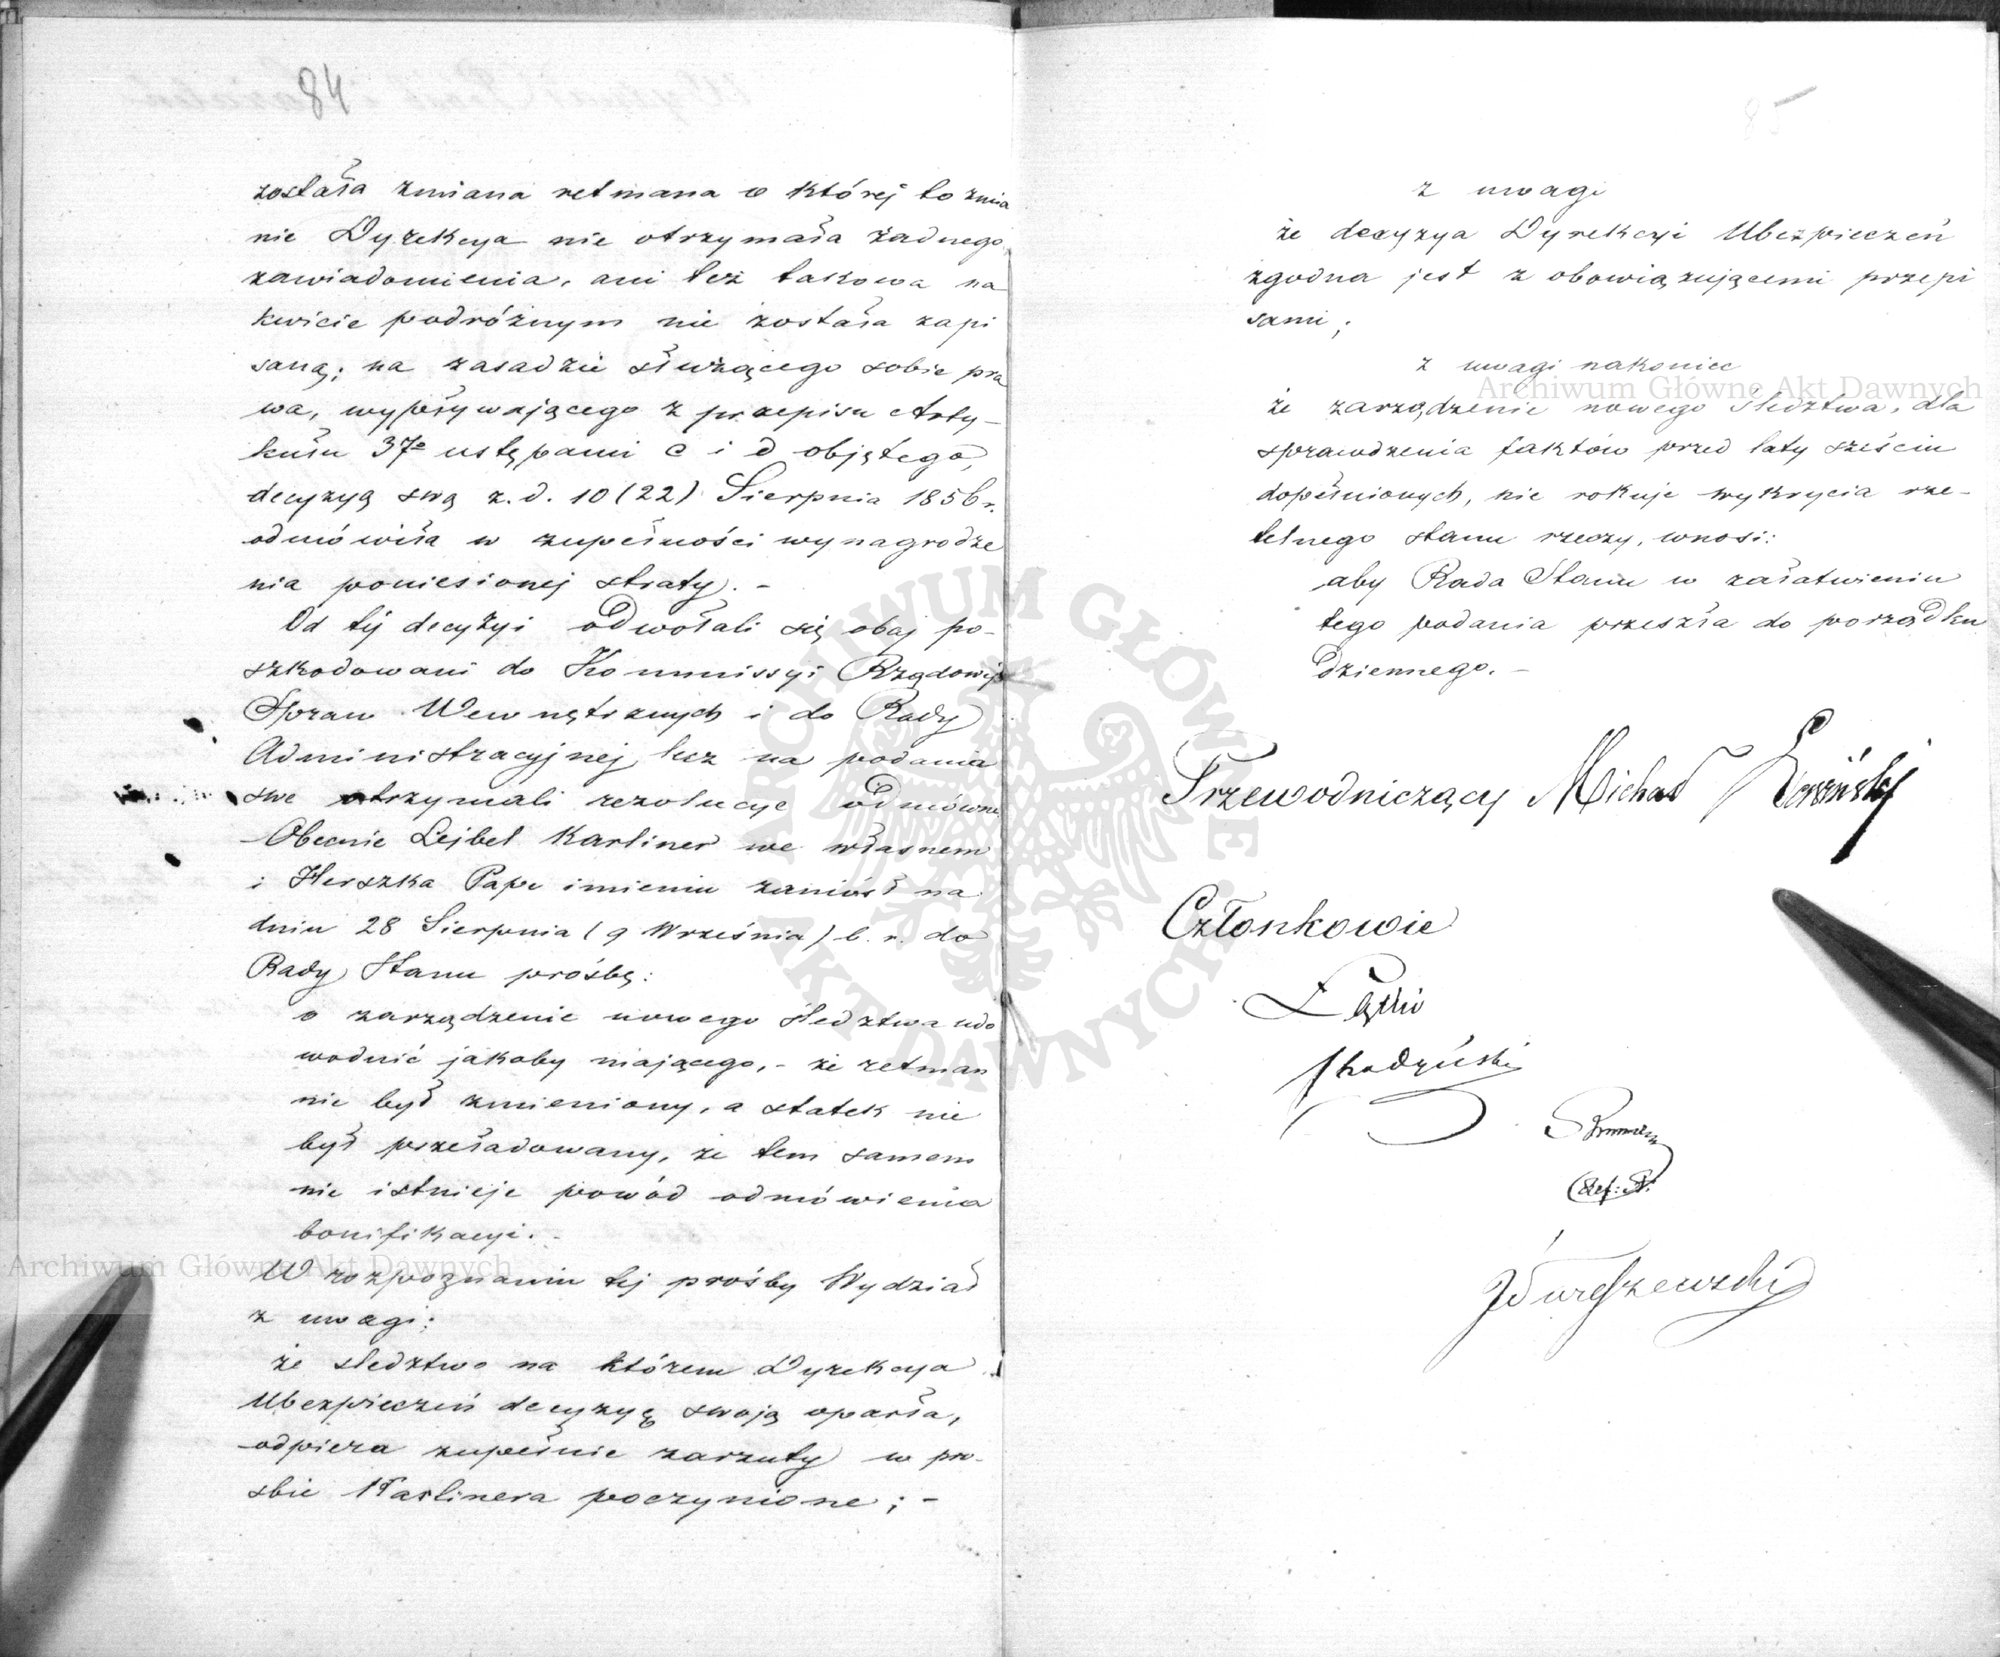 84
została zmiana retmana o której to zmia
nie Dyrekcya nie otrzymała żadnego
zawiadomienia, ani też takowa na
kwicie podróżnym nie została zapi
saną; na zasadzie służącego sobie pra
wa, wypływającego z przepisu Arty-
kułu 37º ustępami c i d objętego,
decyzyą swą z. d. 10 (22) Sierpnia 1856 r.
odmówiła w zupełności wynagrodze
nia poniesionej straty. -
Od téj decyzyi odwołali się obaj po-
szkodowani do Kommissyi Rządowéj
Spraw Wewnętrznych i do Rady
Administracyjnej, lecz na podania
swe otrzymali rezolucye odmówne
Obecnie Lejbel Karliner we własnem
i Herszka Pape imieniu zaniósł na
dniu 28 Sierpnia (9 Września) b. r. do
Rady Stanu prośbę:
o zarządzenie nowego śledztwa udo
wodnić jakoby mającego, - że retman
nie był zmieniony, a statek nie
był przeładowany, że tem samem
nie istnieje powód odmówienia
bonifikacyi. -
W rozpoznaniu tej prośby Wydział
z uwagi:
że śledztwo na którem Dyrekcya
Ubezpieczeń decyzyę swoją oparła,
odpiera zupełnie zarzuty w pro-
śbie Karlinera poczynione; -
85
z uwagi
że decyzya Dyrekcyi Ubezpieczeń
zgodna jest z obowiązującemi przepi
sami;
z uwagi nakoniec
że zarządzenie nowego śledztwa, dla
sprawdzenia faktów przed laty sześciu
dopełnionych, nie rokuje wykrycia rze-
telnego stanu rzeczy, wnosi:
aby Rada Stanu w załatwieniu
tego podania przeszła do porządku
dziennego. -
Przewodniczący Michał
Członkowie
Ref: St.
Archiwum Główne Akt Dawnych
Archiwum Główne Akt Dawnych
ARCHIWUM GŁÓWNE AKT DAWNYCH